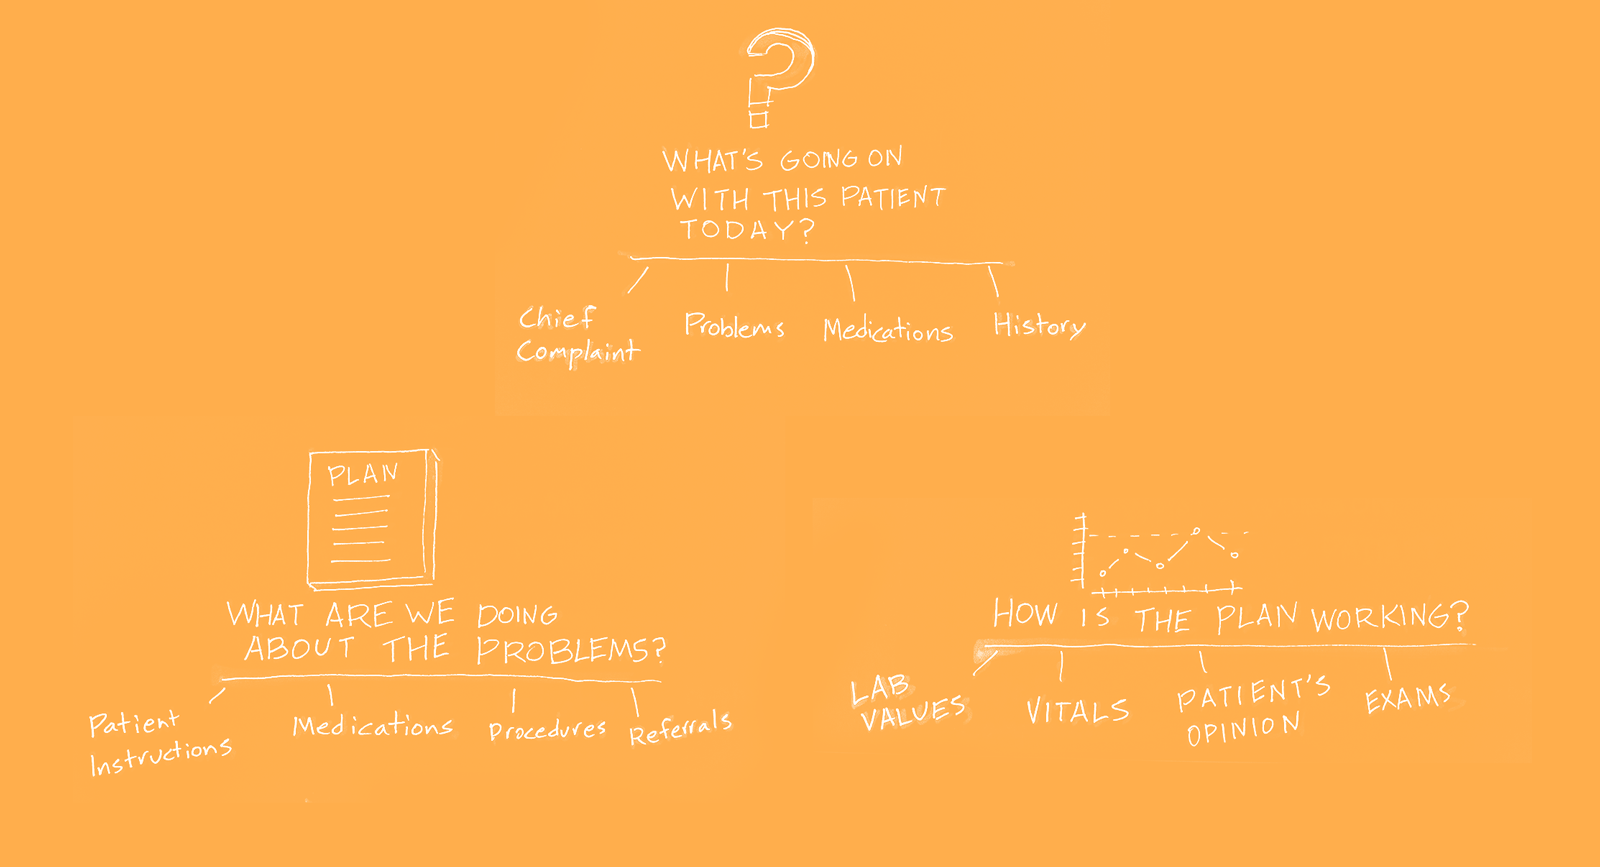 WHAT'S GOING ON
WITH THIS PATIENT
TODAY?
Chief
Complaint
Problems
Medications
History
PLAN
WHAT ARE WE DOING
ABOUT THE PROBLEMS?
Patient
Instructions
Medications
Procedures
Referrals
HOW IS THE PLAN WORKING?
LAB
VALUES
VITALS
PATIENT'S
OPINION
EXAMS